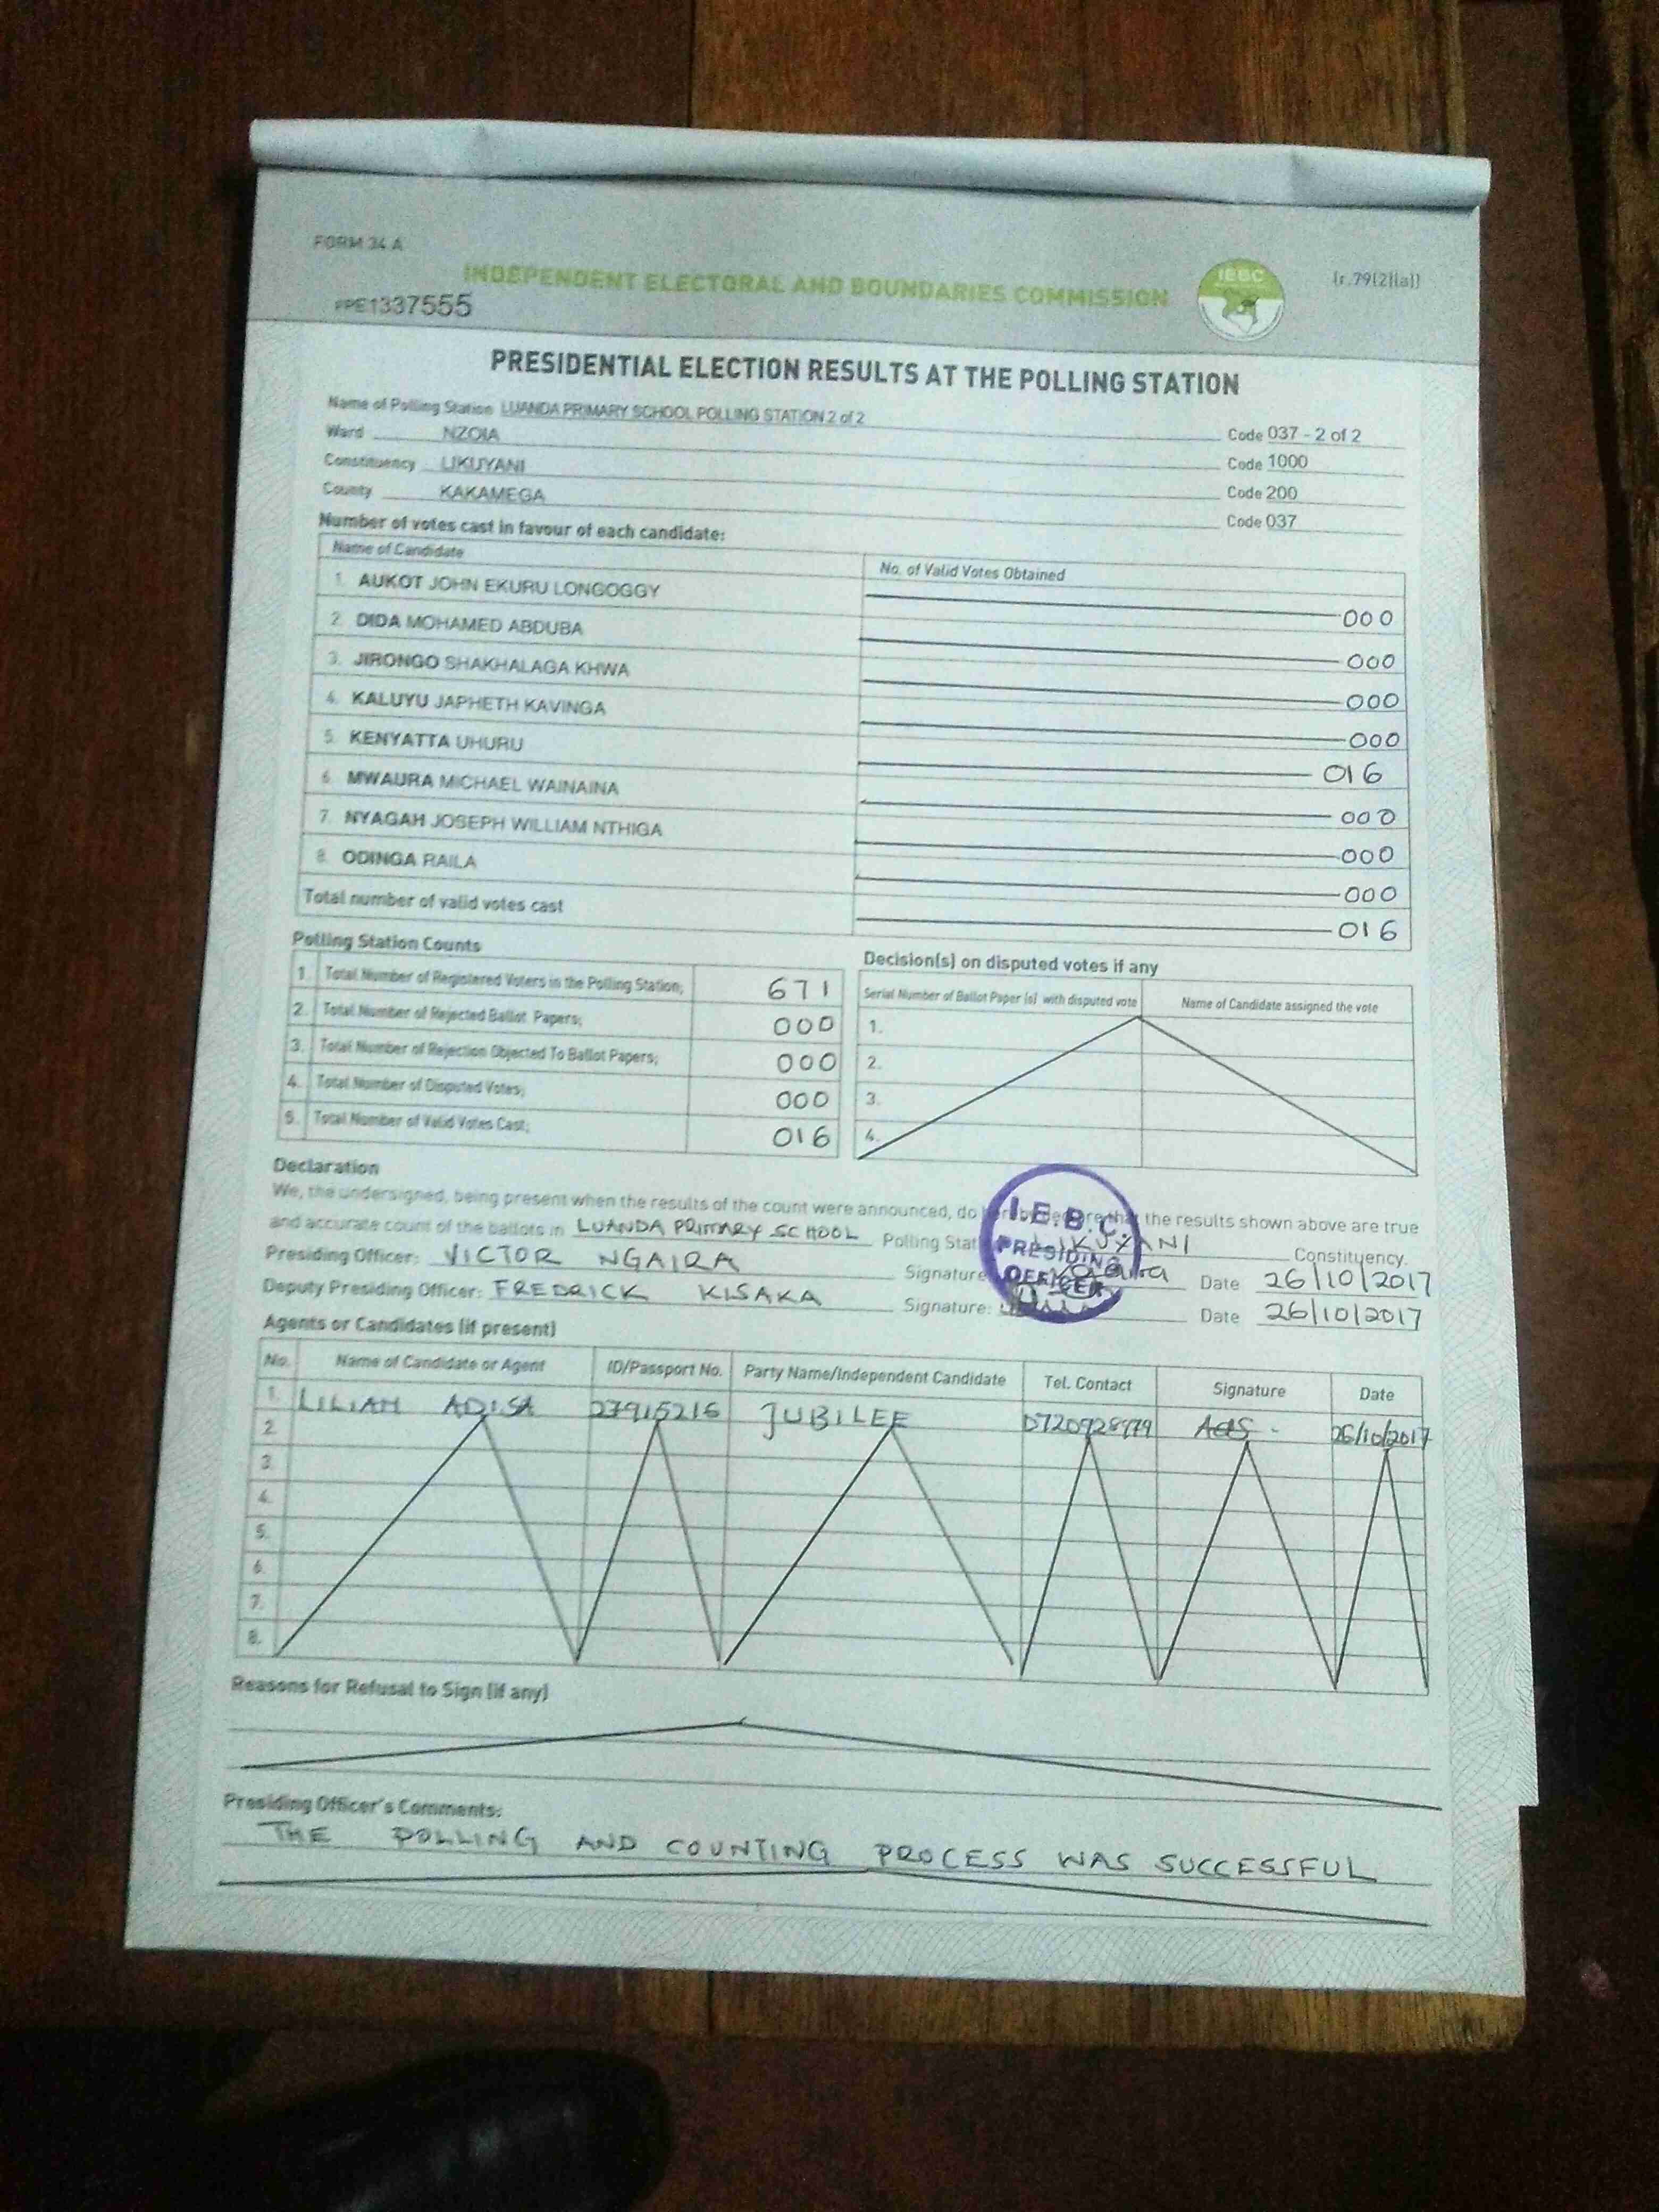 FORM 34 A
INDEPENDENT ELECTORAL AND BOUNDARIES COMMISSION
IEBC
(r.79(2)(a))
PPE1337555
PRESIDENTIAL ELECTION RESULTS AT THE POLLING STATION
Name of Polling Station LUANDA PRIMARY SCHOOL POLLING STATION 2 of 2 Code 037 - 2 of 2
Ward NZOIA Code 1000
Constituency LIKUYANI Code 200
County KAKAMEGA Code 037
Number of votes cast in favour of each candidate:
Name of Candidate No. of Valid Votes Obtained
1. AUKOT JOHN EKURU LONGOGGY 000
2. DIDA MOHAMED ABDUBA 000
3. JIRONGO SHAKHALAGA KHWA 000
4. KALUYU JAPHETH KAVINGA 000
5. KENYATTA UHURU 016
6. MWAURA MICHAEL WAINAINA 000
7. NYAGAH JOSEPH WILLIAM NTHIGA 000
8. ODINGA RAILA 000
Total number of valid votes cast 016
Polling Station Counts
1. Total Number of Registered Voters in the Polling Station; 671
2. Total Number of Rejected Ballot Papers; 000
3. Total Number of Rejection Objected To Ballot Papers; 000
4. Total Number of Disputed Votes; 000
5. Total Number of Valid Votes Cast; 016
Decision(s) on disputed votes if any
Serial Number of Ballot Paper (s) with disputed vote Name of Candidate assigned the vote
1.
2.
3.
4.
Declaration
We, the undersigned, being present when the results of the count were announced, do hereby declare that the results shown above are true
and accurate count of the ballots in LUANDA PRIMARY SCHOOL Polling Station LIKUYANI Constituency.
I.E.B.C.
PRESIDING
OFFICER
Presiding Officer: VICTOR NGAIRA Signature Date 26/10/2017
Deputy Presiding Officer: FREDRICK KISAKA Signature: Date 26/10/2017
Agents or Candidates (if present)
No. Name of Candidate or Agent ID/Passport No. Party Name/Independent Candidate Tel. Contact Signature Date
1. LILIAN ADISA 27915216 JUBILEE 26/10/2017
2.
3.
4.
5.
6.
7.
8.
Reasons for Refusal to Sign (if any)
Presiding Officer's Comments:
THE POLLING AND COUNTING PROCESS WAS SUCCESSFUL